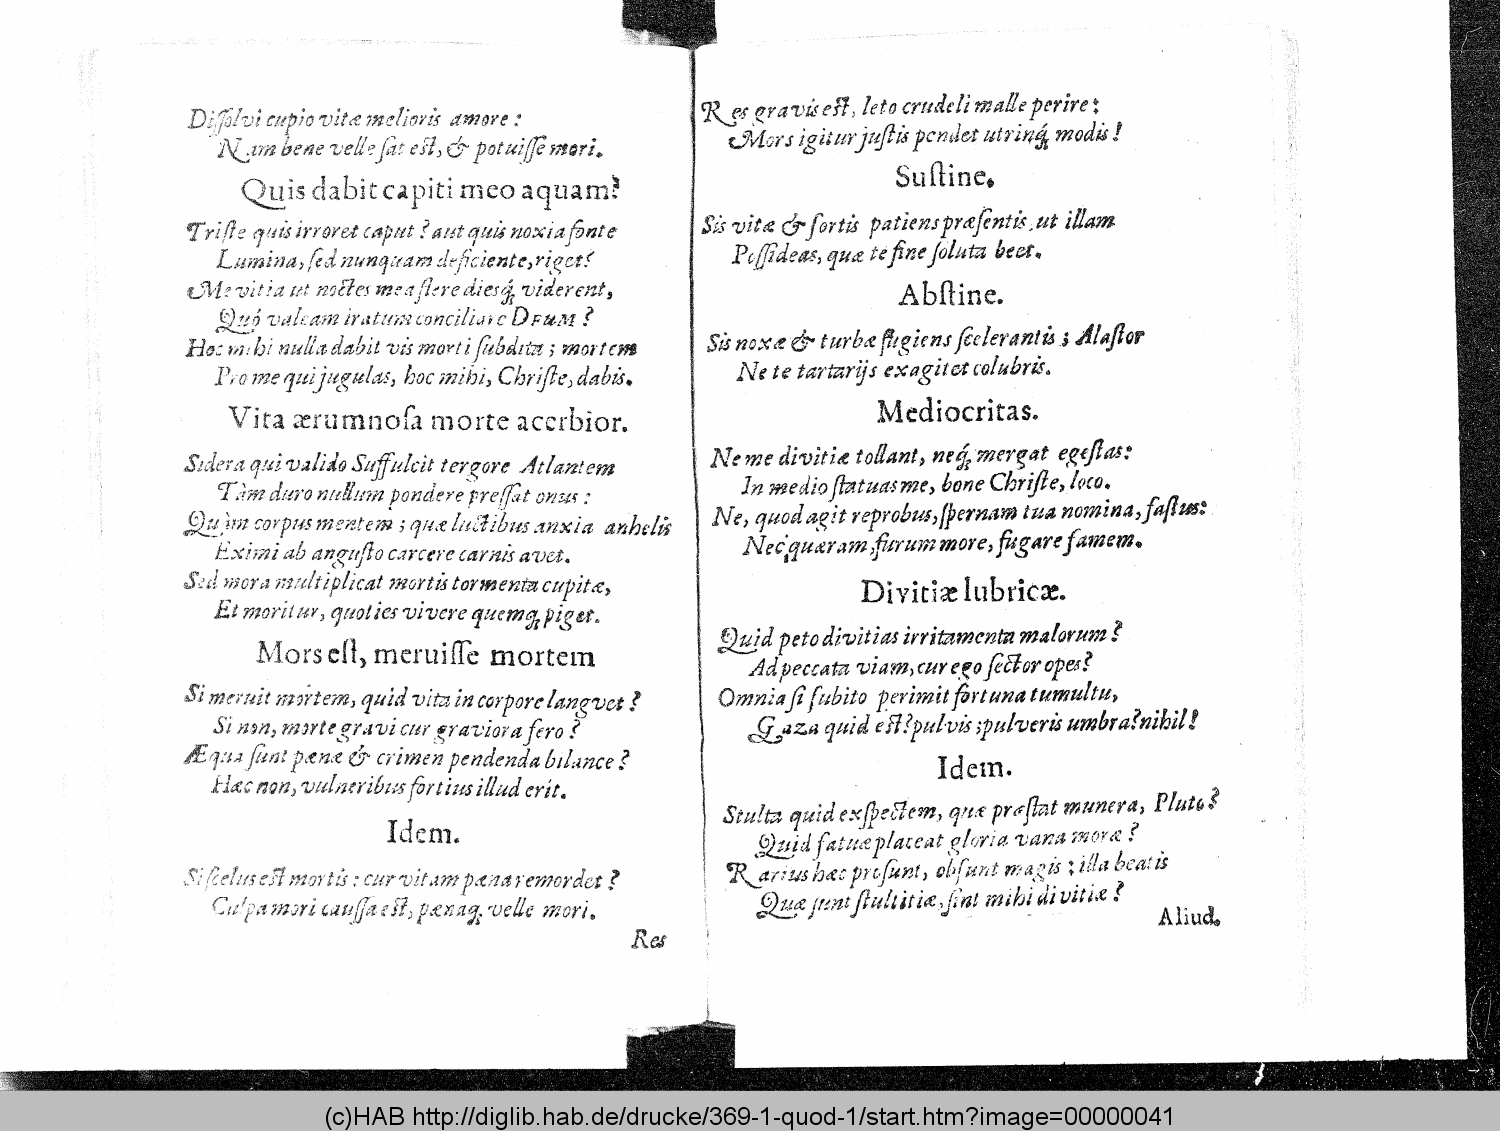 Dissolvi cupio vitæ melioris amore:
Nam bene velle sat est, & potuisse mori.
Quis dabit capiti meo aquam?
Triste quis irroret caput? aut quis noxia fonte
Lumina, sed nunquam deficiente, riget?
Me vitia ut noctes mea flere diesq́; viderent,
Quó valeam iratum conciliare DEUM?
Hoc mihi nulla dabit vis morti subdita; mortem
Pro me qui jugulas, hoc mihi, Christe, dabis.
Vita ærumnosa morte acerbior.
Sidera qui valido Suffulcit tergore Atlantem
Tàm duro nullum pondere pressat onus:
Quàm corpus mentem; quæ luctibus anxia anhelis
Eximi ab angusto carcere carnis avet.
Sed mora multiplicat mortis tormenta cupitæ,
Et moritur, quoties vivere quemq; piget.
Mors est, meruisse mortem
Si meruit mortem, quid vita in corpore langvet?
Si non, morte gravi cur graviora fero?
Æqua sunt pœnæ & crimen pendenda bilance?
Hæc non, vulneribus fortius illud erit.
Idem.
Si scelus est mortis: cur vitam pœna remordet?
Culpa mori caussa est, pœnaq; velle mori.
Res
Res gravis est, leto crudeli malle perire;
Mors igitur justis pendet utrinq́; modis!
Sustine.
Sis vitæ & sortis patiens præsentis, ut illam
Possideas, quæ te fine soluta beet.
Abstine.
Sis noxæ & turbæ fugiens scelerantis; Alastor
Ne te tartarijs exagitet colubris.
Mediocritas.
Ne me divitiæ tollant, neq́; mergat egestas:
In medio statuas me, bone Christe, loco.
Ne, quod agit reprobus, spernam tua nomina, fastus:
Nec quæram, furum more, fugare famem.
Divitiæ lubricæ.
Quid peto divitias irritamenta malorum?
Ad peccata viam, cur ego sector opes?
Omnia si subito perimit fortuna tumultu,
Gaza quid est? pulvis; pulveris umbra? nihil!
Idem.
Stulta quid exspectem, quæ præstat munera, Pluto?
Quid fatuæ placeat gloria vana moræ?
Rarius hæc prosunt, obsunt magis; illa beatis
Quæ sunt stultitiæ, sint mihi divitiæ?
Aliud.
(c)HAB http://diglib.hab.de/drucke/369-1-quod-1/start.htm?image=00000041